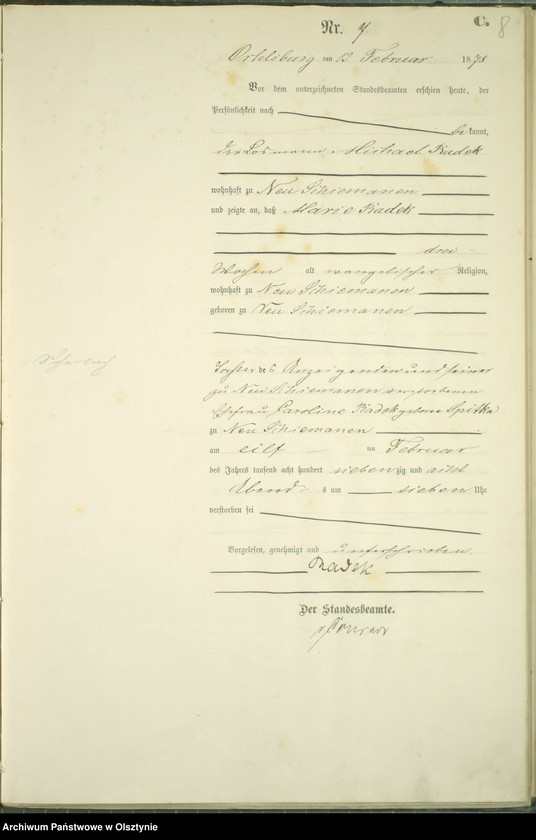 C.
8
Nr. 7.
Ortelsburg am 12 Februar 1878
Vor dem unterzeichneten Standesbeamten erschien heute, der
Persönlichkeit nach
bekannt,
der Losmann Michael Radek
wohnhaft zu Neu Schiemanen
und zeigte an, daß Marie Radek
drei
Wochen alt evangelischer Religion,
wohnhaft zu Neu Schiemanen
geboren zu Neu Schiemanen
Tochter des Anzeigenden und seiner
zu Neu Schiemanen verstorbenen
Ehefrau Caroline Radek geboren Spitka
zu Neu Schiemanen
am eilf ten Februar
des Jahres tausend acht hundert sieben zig und acht
Abends um sieben Uhr
verstorben sei
Vorgelesen, genehmigt und unterschrieben
Radek
Der Standesbeamte.
Archiwum Państwowe w Olsztynie